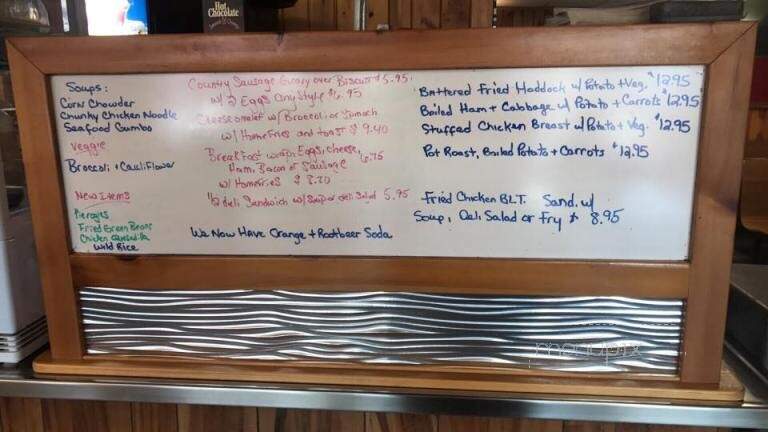 Hot
Chocolate
Soups:
Corn Chowder
Chunky Chicken Noodle
Seafood Gumbo
Veggie
Broccoli + Cauliflower
New Items
Pierogies
Fried Green Beans
Chicken Quesadilla
Wild Rice
Country Sausage Gravy over Biscuits $5.95
w/ 2 Eggs Any Style $6.95
Cheese omelet w/ Broccoli or Spinach
w/ HomeFries and toast $9.40
BreakFast wraps, Eggs, Cheese,
Ham, Bacon or Sausage 6.75
w/ HomeFries $8.20
1/2 deli Sandwich w/ Soup or deli Salad 5.95
We Now Have Orange + Rootbeer Soda
Battered Fried Haddock w/ Potato + Veg. $12.95
Boiled Ham + Cabbage w/ Potato + Carrots $12.95
Stuffed Chicken Breast w/ Potato + Veg. $12.95
Pot Roast, Boiled Potato + Carrots $12.95
Fried Chicken BLT. Sand. w/
Soup, Deli Salad or Fry $8.95
menupix